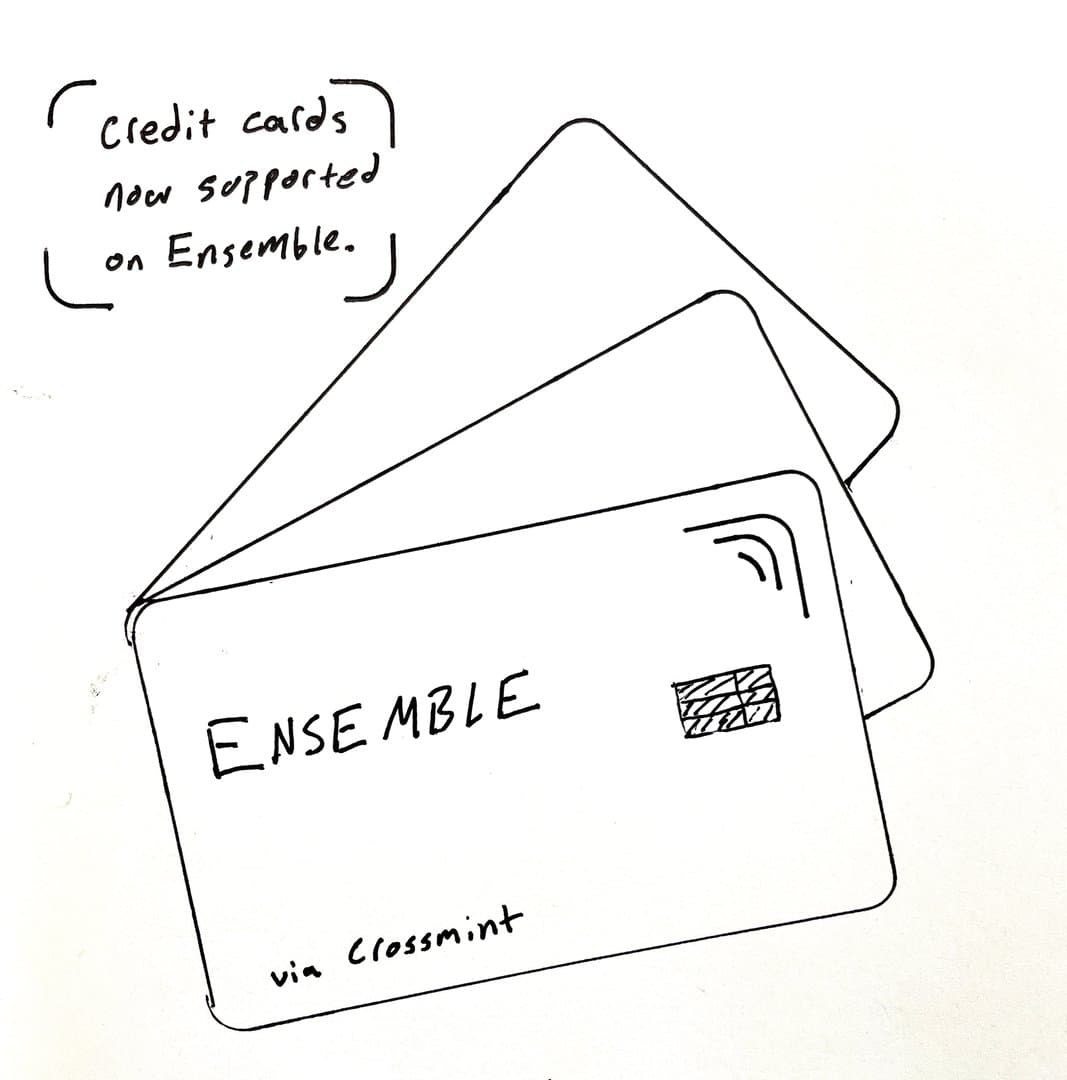 Credit cards
now supported
on Ensemble.
ENSEMBLE
via Crossmint